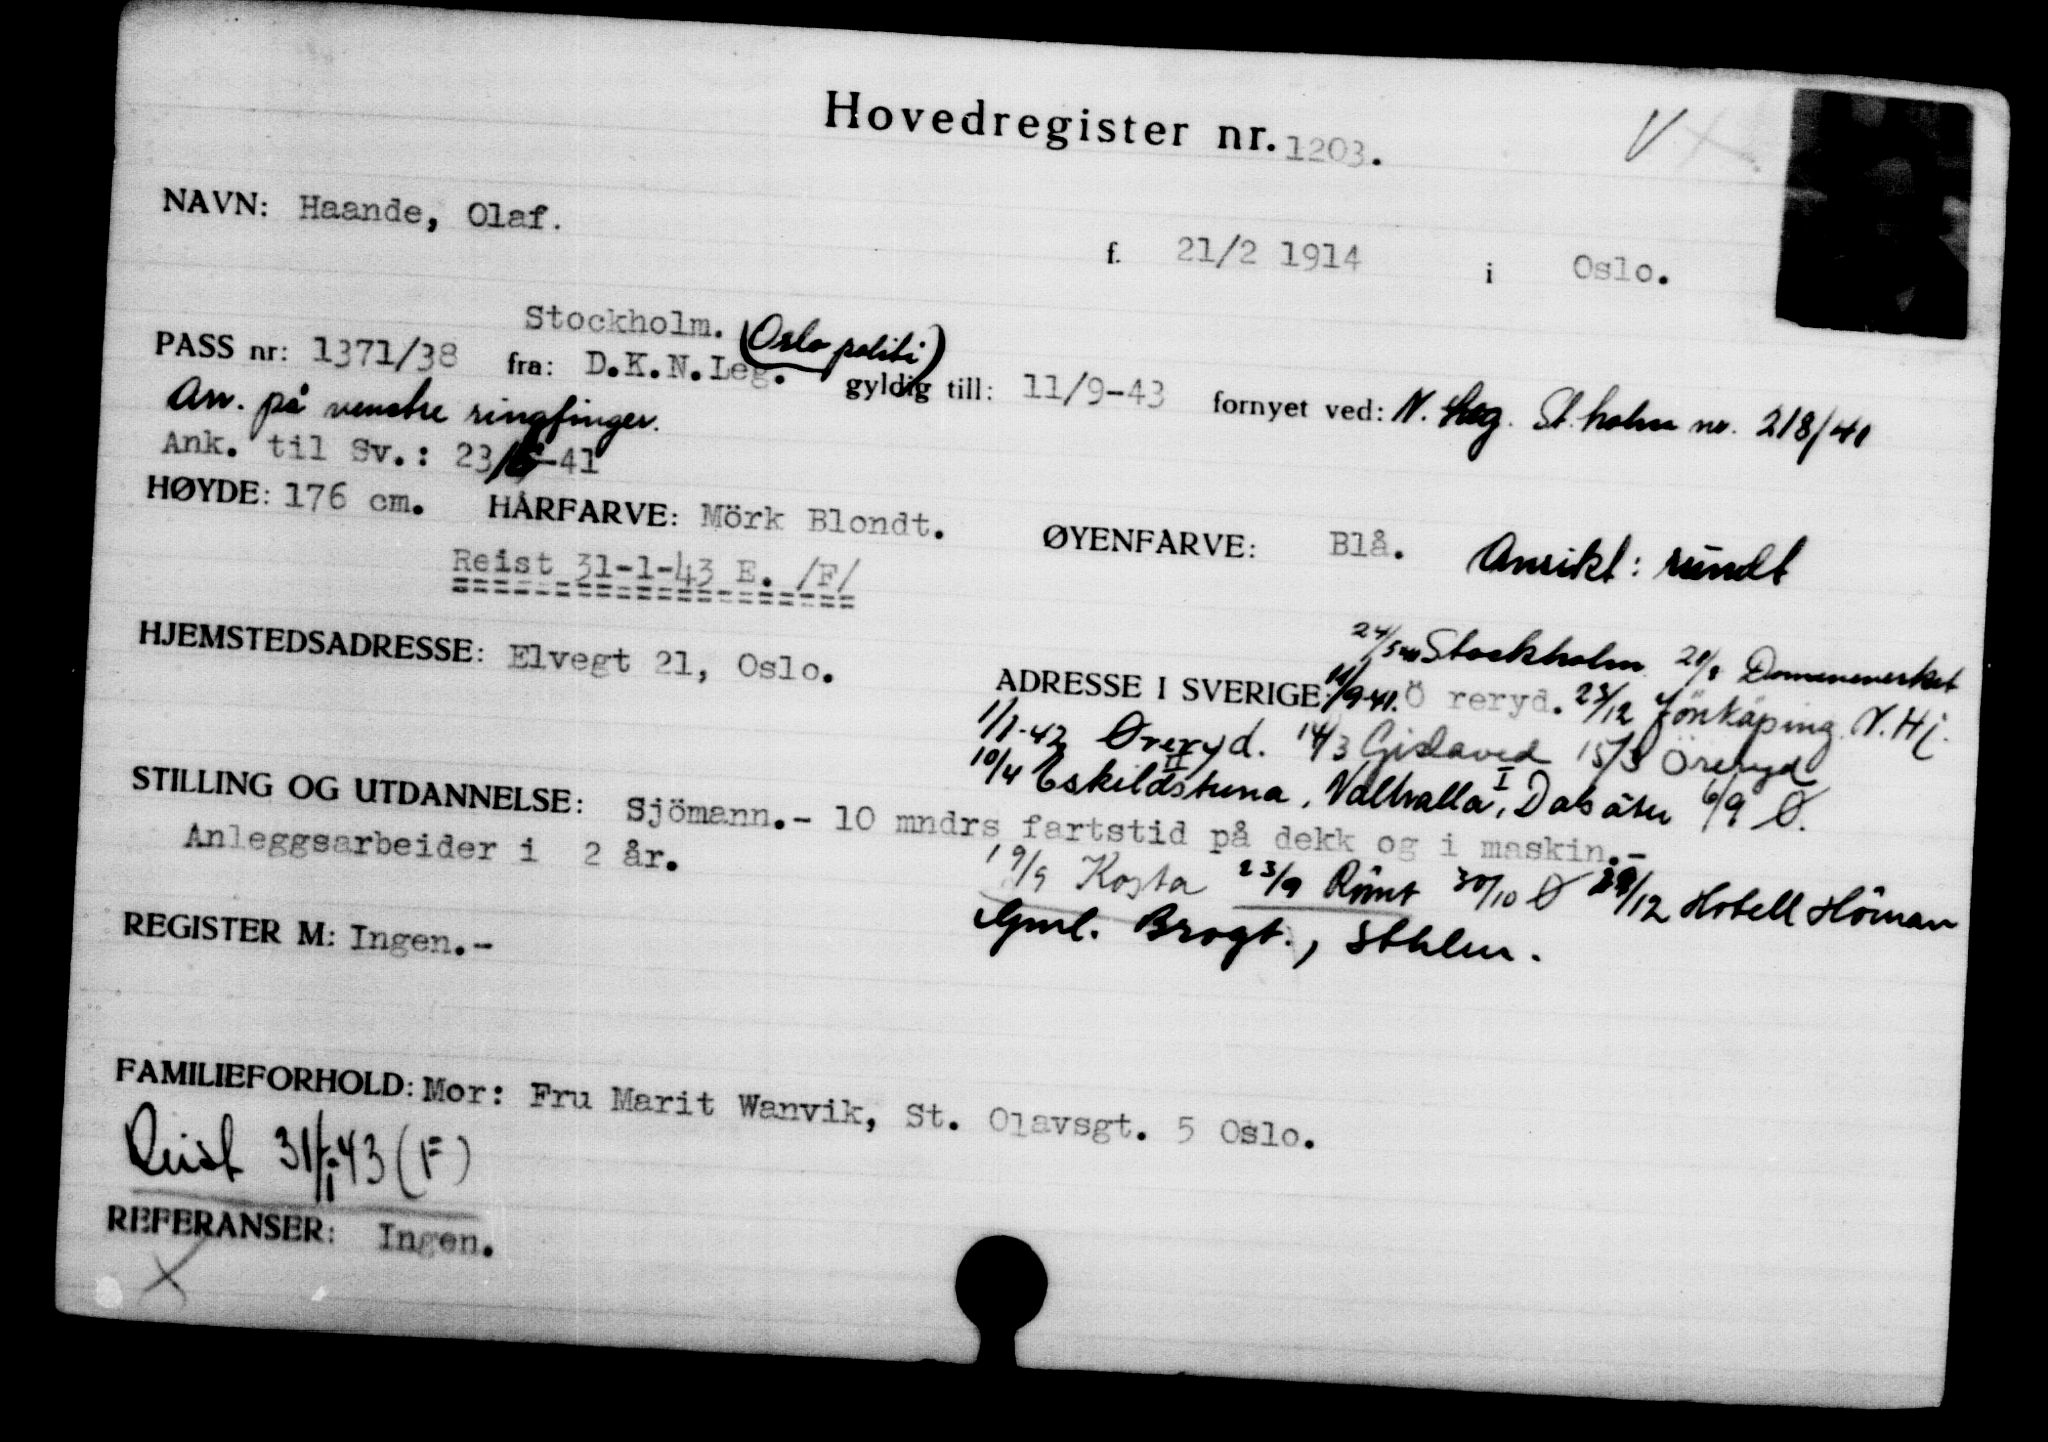 Hovedregister nr. 1203.
NAVN: Haande, Olaf.
f. 21/2 1914 i Oslo.
Stockholm. (Oslo politi)
PASS nr: 1371/38 fra: D.K.N.Leg. gyldig till: 11/9-43 fornyet ved: N. Leg. St.holm nr. 218/41
Arr. på venstre ringfinger.
Ank. til Sv.: 23/5-41
HØYDE: 176 cm. HÅRFARVE: Mörk Blondt. ØYENFARVE: Blå. Ansikt: rundt
Reist 31-1-43 E. /F/
HJEMSTEDSADRESSE: Elvegt 21, Oslo.
24/5-41 Stockholm 20/8 Domeneverket
ADRESSE I SVERIGE: 11/9-41. Ö reryd. 23/12 Jönkäping N. Hj.
1/1-42 Øreryd. 14/3 Gislaved 15/3 Öreryd
10/4 Eskildstuna, Valhalla I, Dalsäter 6/9 Ø.
STILLING OG UTDANNELSE: Sjömann.- 10 mndrs fartstid på dekk og i maskin.-
Anleggsarbeider i 2 år.
19/9 Kosta 23/9 Römt 30/10 Ø 29/12 Hotell Höman
Gml. Brogt., Sthlm.
REGISTER M: Ingen.-
FAMILIEFORHOLD: Mor: Fru Marit Wanvik, St. Olavsgt. 5 Oslo.
Reist 31/1-43 (F)
REFERANSER: Ingen.